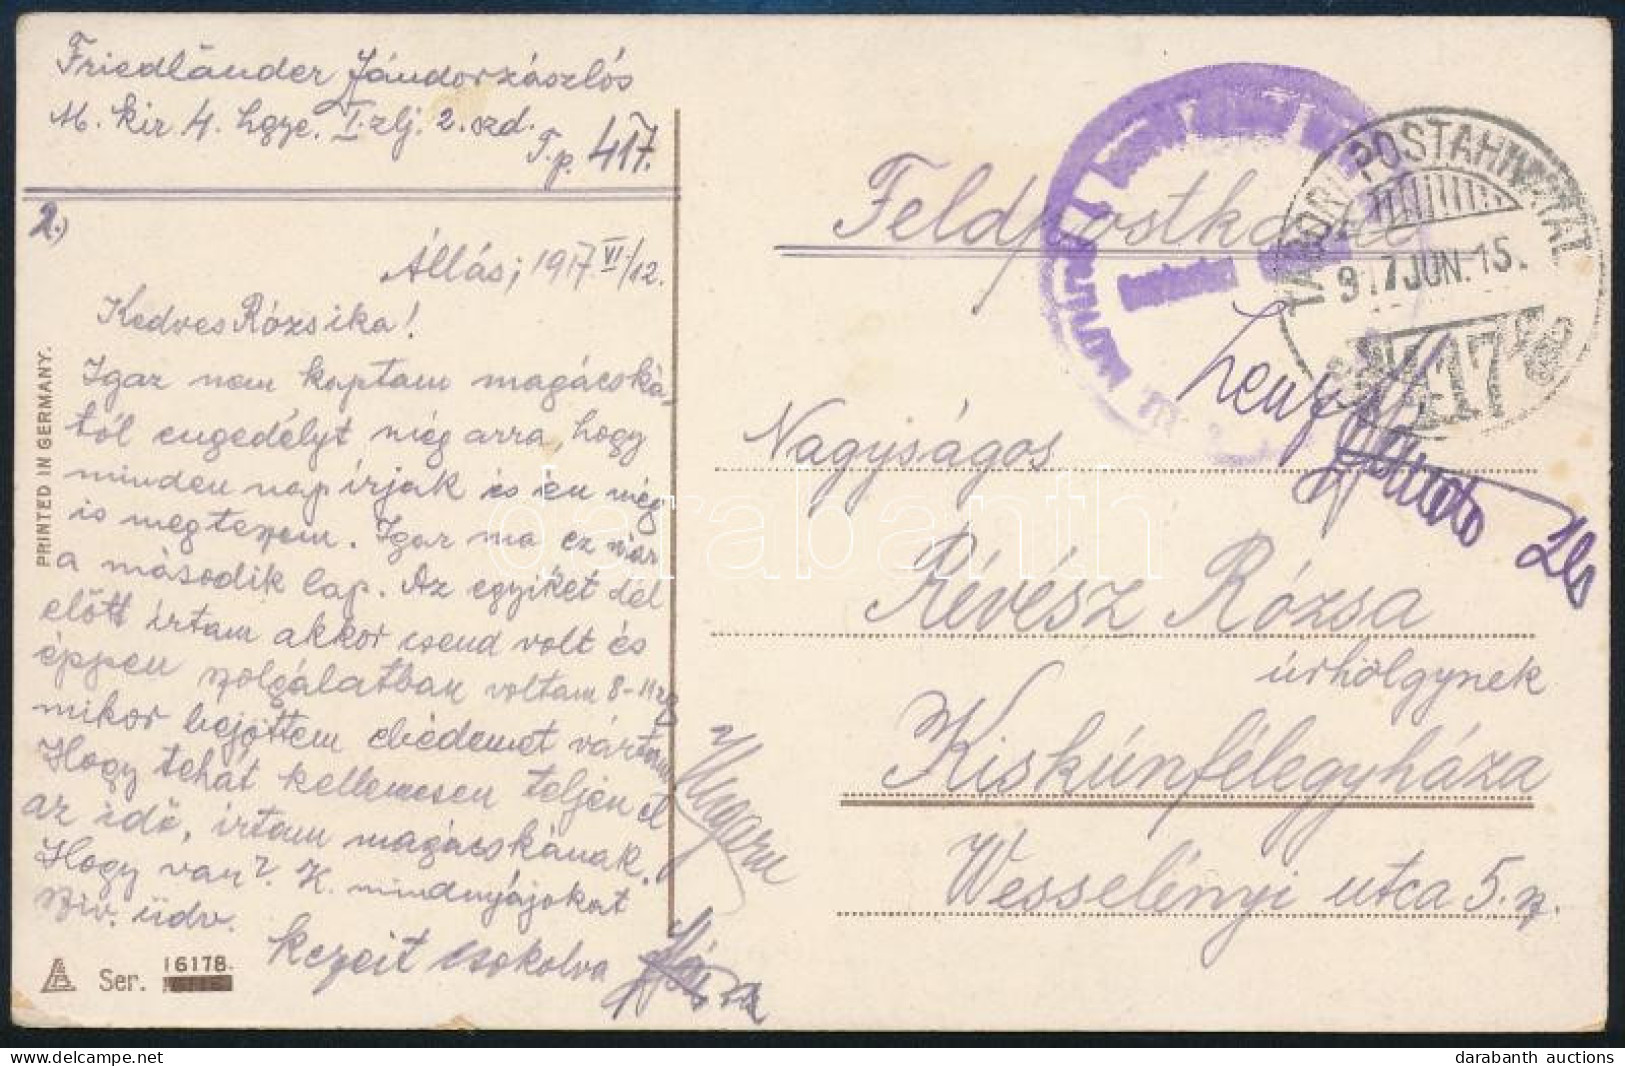 Friedländer Sándor zászlós
M. kir 4. hgye. I. zlj. 2. szd.
T.p. 417.
2.)
Állás; 1917 VI/12.
Kedves Rózsika!
Igaz nem kaptam magácská-
tól engedélyt még arra, hogy
minden nap írjak és én még
is megteszem. Igaz ma ez már
a második lap. Az egyiket dél
előtt írtam akkor csend volt és
éppen szolgálatban voltam 8-11 ig
mikor bejöttem ebédemet vártam
Hogy tehát kellemesen teljen el
az idő, írtam magácskának.
Hogy van? K. mindnyájokat
sziv. üdv.
kezeit csokolva
Ser. 16178.
PRINTED IN GERMANY.
Feldpostkarte
TÁBORI POSTAHIVATAL
917 JUN. 15.
417
Nagyságos
Révész Rózsa
úrhölgynek
Kiskúnfélegyháza
Wesselényi utca 5. sz.
Ungarn
darabanth
darabanth auctions